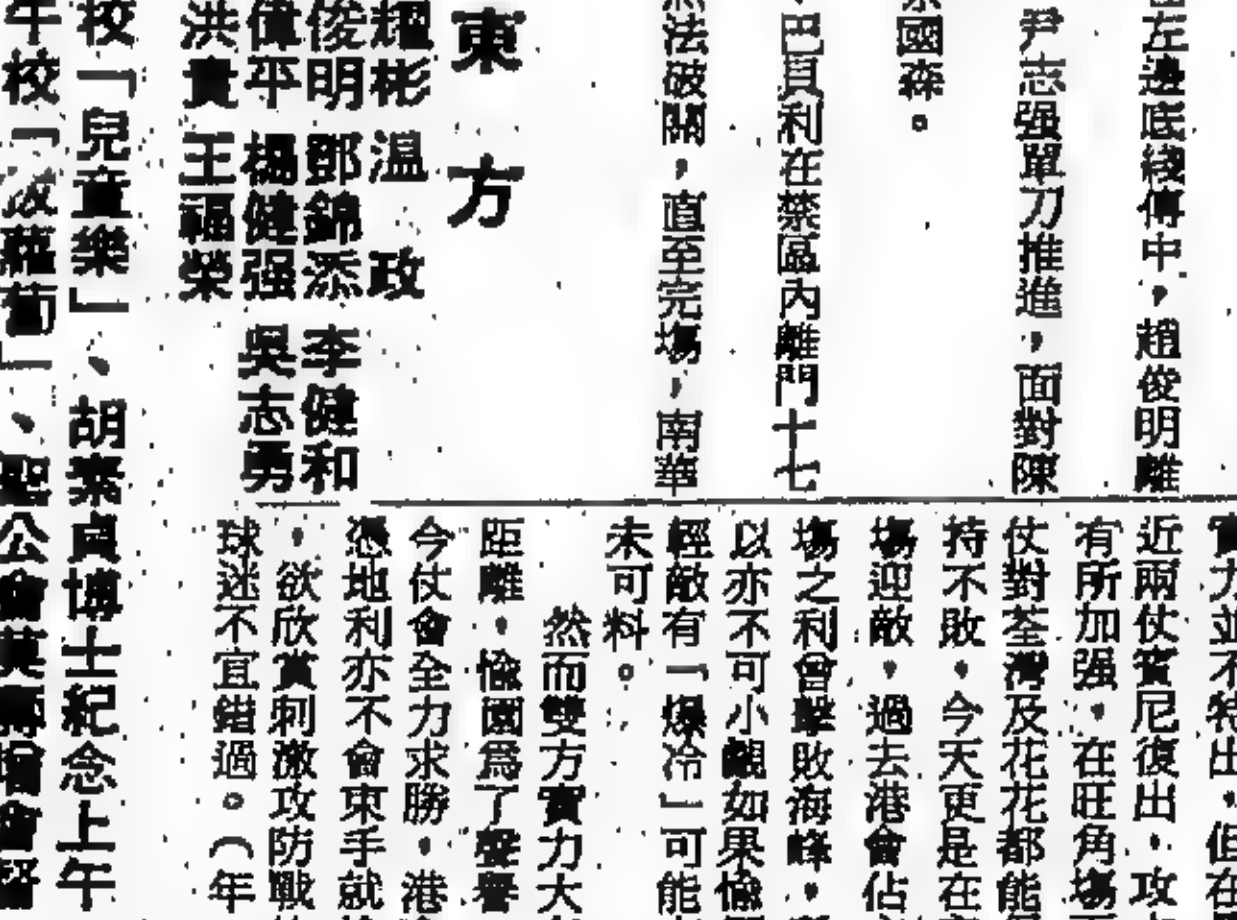 左邊底綫傳中，趙俊明離
尹志强單刀推進，面對陳
國森。
巴貝利在禁區內離門十七
法破關，直至完塲，南華
東方
耀彬 温政
俊明 鄧錦添 李健和
偉平 楊健强 吳志勇
洪貴 王福榮
實力並不特出，但在
近兩仗寶尼復出，攻
有所加强，在旺角塲
仗對荃灣及花花都能
持不敗，今天更是在
塲迎敵，過去港會佔
塲之利曾擊敗海蜂，
以亦不可小覷如果愉
輕敵有「爆冷」可能
未可料。
然而雙方實力大
距離，愉園爲了聲譽
今仗會全力求勝，港
憑地利亦不會束手就
，欲欣賞刺激攻防戰
球迷不宜錯過。（年
校「兒童樂」、胡素貞博士紀念上午
午校「菠蘿蔔」、聖公會莫壽增會督